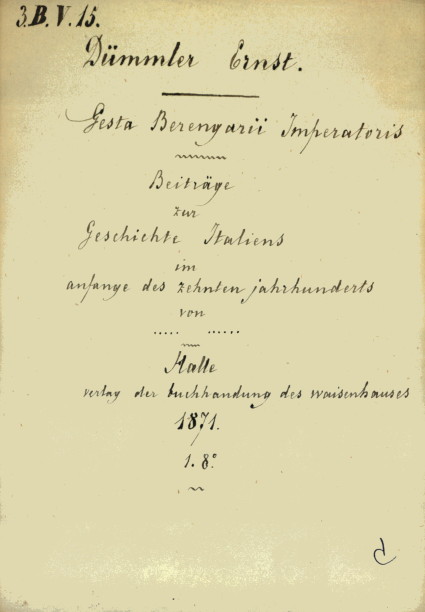 3.B.V.15.
Dümmler Ernst.
Gesta Berengarii Imperatoris
Beiträge
zur
Geschichte Italiens
im
anfange des zehnten jahrhunderts
von
..... ......
Halle
verlag der buchhandung des waisenhauses
1871.
1. 8°
d